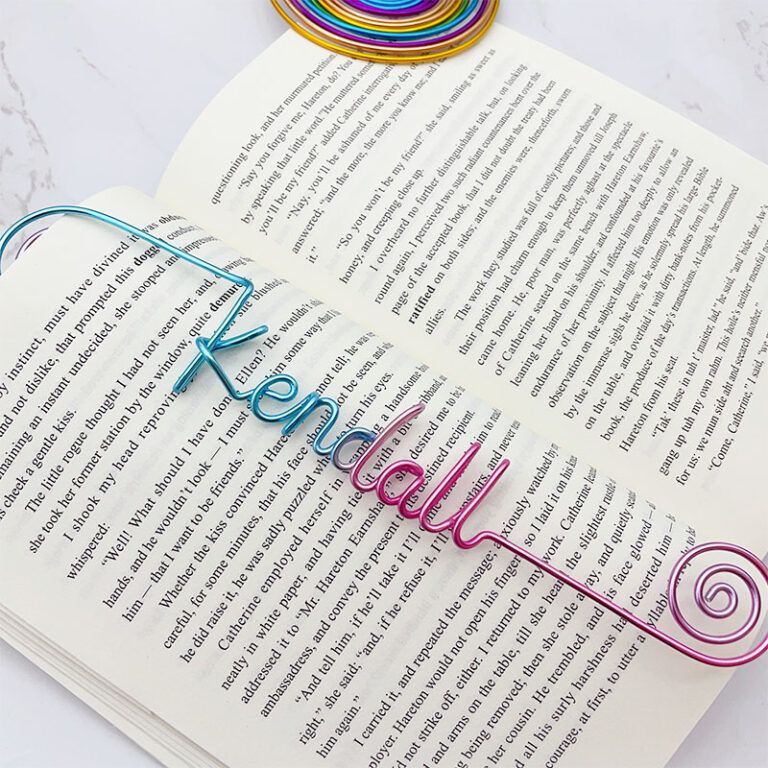 y instinct, must have divined it was
and not dislike, that prompted this dogg conduct
maining an instant undecided, she stooped and impre
s check a gentle kiss.
The little rogue thought I had not seen her, and,
she took her former station by the window, quite demur
I shook my head reprovi she blush
whispered:
"Well! What should I have don Ellen? He wouldn't
hands, and he wouldn't look — I mus him some way that I
him — that I want to be friends."
Whether the kiss convinced Hareton not tell, he was
careful, for some minutes, that his face should not be seen, and
he did raise it, he was sadly puzzled where his eyes.
Catherine employed herself in wrapping a handsome
neatly in white paper, and having tied it with a bit
addressed it to "Mr. Hareton Earnshaw she desired me to be
ambassadress, and convey the present to its destined recipient.
"And tell him, if he'll take it I'll come and
right," she said; "and, if he refuse it, I'll upstairs, and never
him again."
I carried it, and repeated the message, anxiously watched by
ployer Hareton would not open his fingers, so I laid it on his
not strike off, either. I returned to my work. Catherine lean
and arms on the table, till she heard the slightest
being removed; then she stole away, and quietly
him. He trembled, and his face glowed — a
all his surly harshness had deserted him —
courage, at first, to utter a syllable
questioning look, and her murmured petition
"Say you forgive me, Hareton, do? You
by speaking that little word." He muttered
you'll be my friend?" added Catherine interrogative
"Nay, you'll be ashamed of me every day of
answered; "and the more, the more you know me; and
it."
"So you won't be my friend?" she said, smiling as sweet as
honey, and creeping close up.
I overheard no further distinguishable talk, but, on looking
round again, I perceived two such radiant countenances bent over the
page of the accepted book, that I did not doubt the treaty had been
ratified on both sides; and the enemies were, thenceforth, sworn
allies.
The work they studied was full of costly pictures; and those and
their position had charm enough to keep them unmoved till Joseph
came home. He, poor man, was perfectly aghast at the spectacle
of Catherine seated on the same bench with Hareton Earnshaw,
leaning her hand on his shoulder; and confounded at his favourite's
endurance of her proximity. It affected him too deeply to allow an
observation on the subject that night. His emotion was only revealed
by the immense sighs he drew, as he solemnly spread his large Bible
on the table, and overlaid it with dirty bank-notes from his pocket-
book, the produce of the day's transactions. At length, he summoned
Hareton from his seat.
"Tak' these in tuh t' maister, lad," he said, "and bide
gang up tuh my own rahm. This hoile's neither mensful
for us: we mun side aht and search another."
"Come, Catherine," I said, "we
Kendall